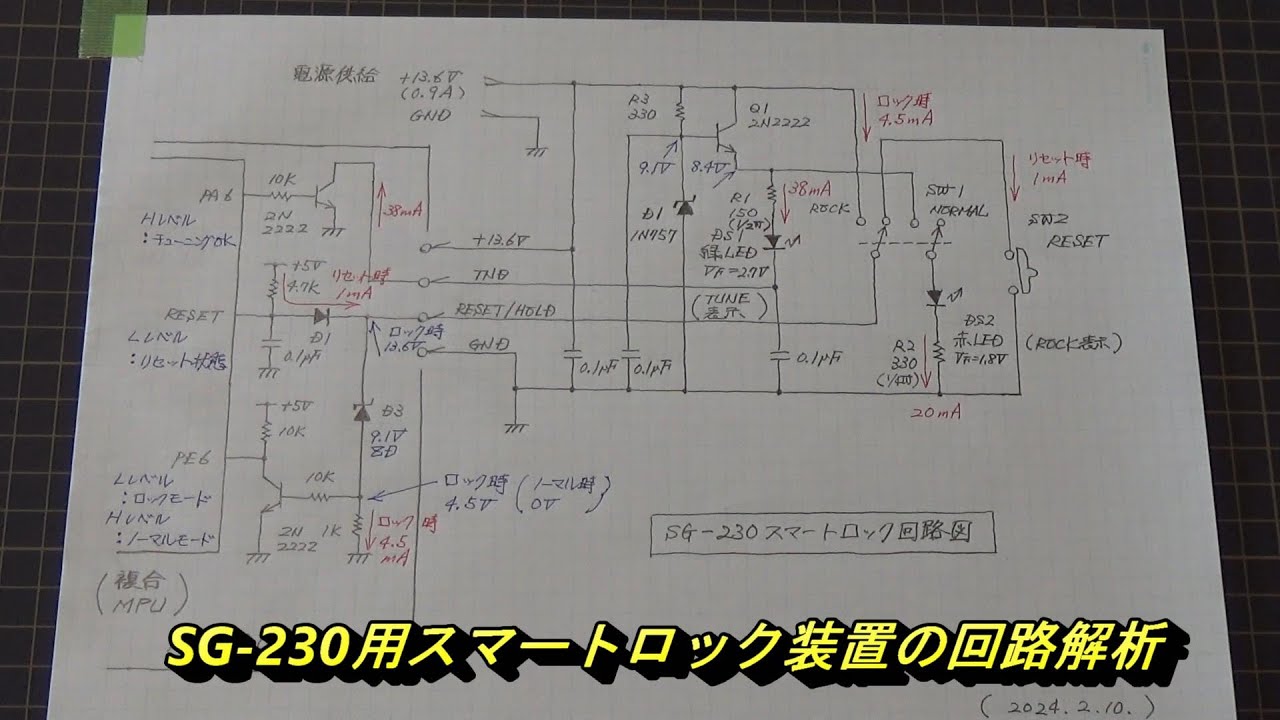 電源供給 +13.6V
(0.9A)
GND
R3
230
Q1
2N2222
ロック時
4.5mA
リセット時
1mA
9.1V
8.4V
PA6
10K
2N
2222
38mA
Hレベル
:チューニングOK
D1
1N757
R1
150
(1/2W)
38mA
ROCK
SW1
NORMAL
SW2
RESET
DS1
緑LED
VF=2.7V
+13.6V
TND
+5V
4.7K
リセット時
1mA
(TUNE
表示)
RESET
RESET/HOLD
D1
ロック時
13.6V
GND
Lレベル
:リセット状態
0.1μF
0.1μF
0.1μF
0.1μF
DS2
赤LED
VF=1.8V
(ROCK表示)
R2
330
(1/4W)
20mA
+5V
10K
D3
9.1V
ZD
PE6
Lレベル
:ロックモード
Hレベル
:ノーマルモード
10K
ロック時
4.5V
(ノーマル時
0V)
2N
2222
1K
ロック時
4.5
mA
SG-230スマートロック回路図
(複合
MPU)
SG-230用スマートロック装置の回路解析
(2024.2.10.)